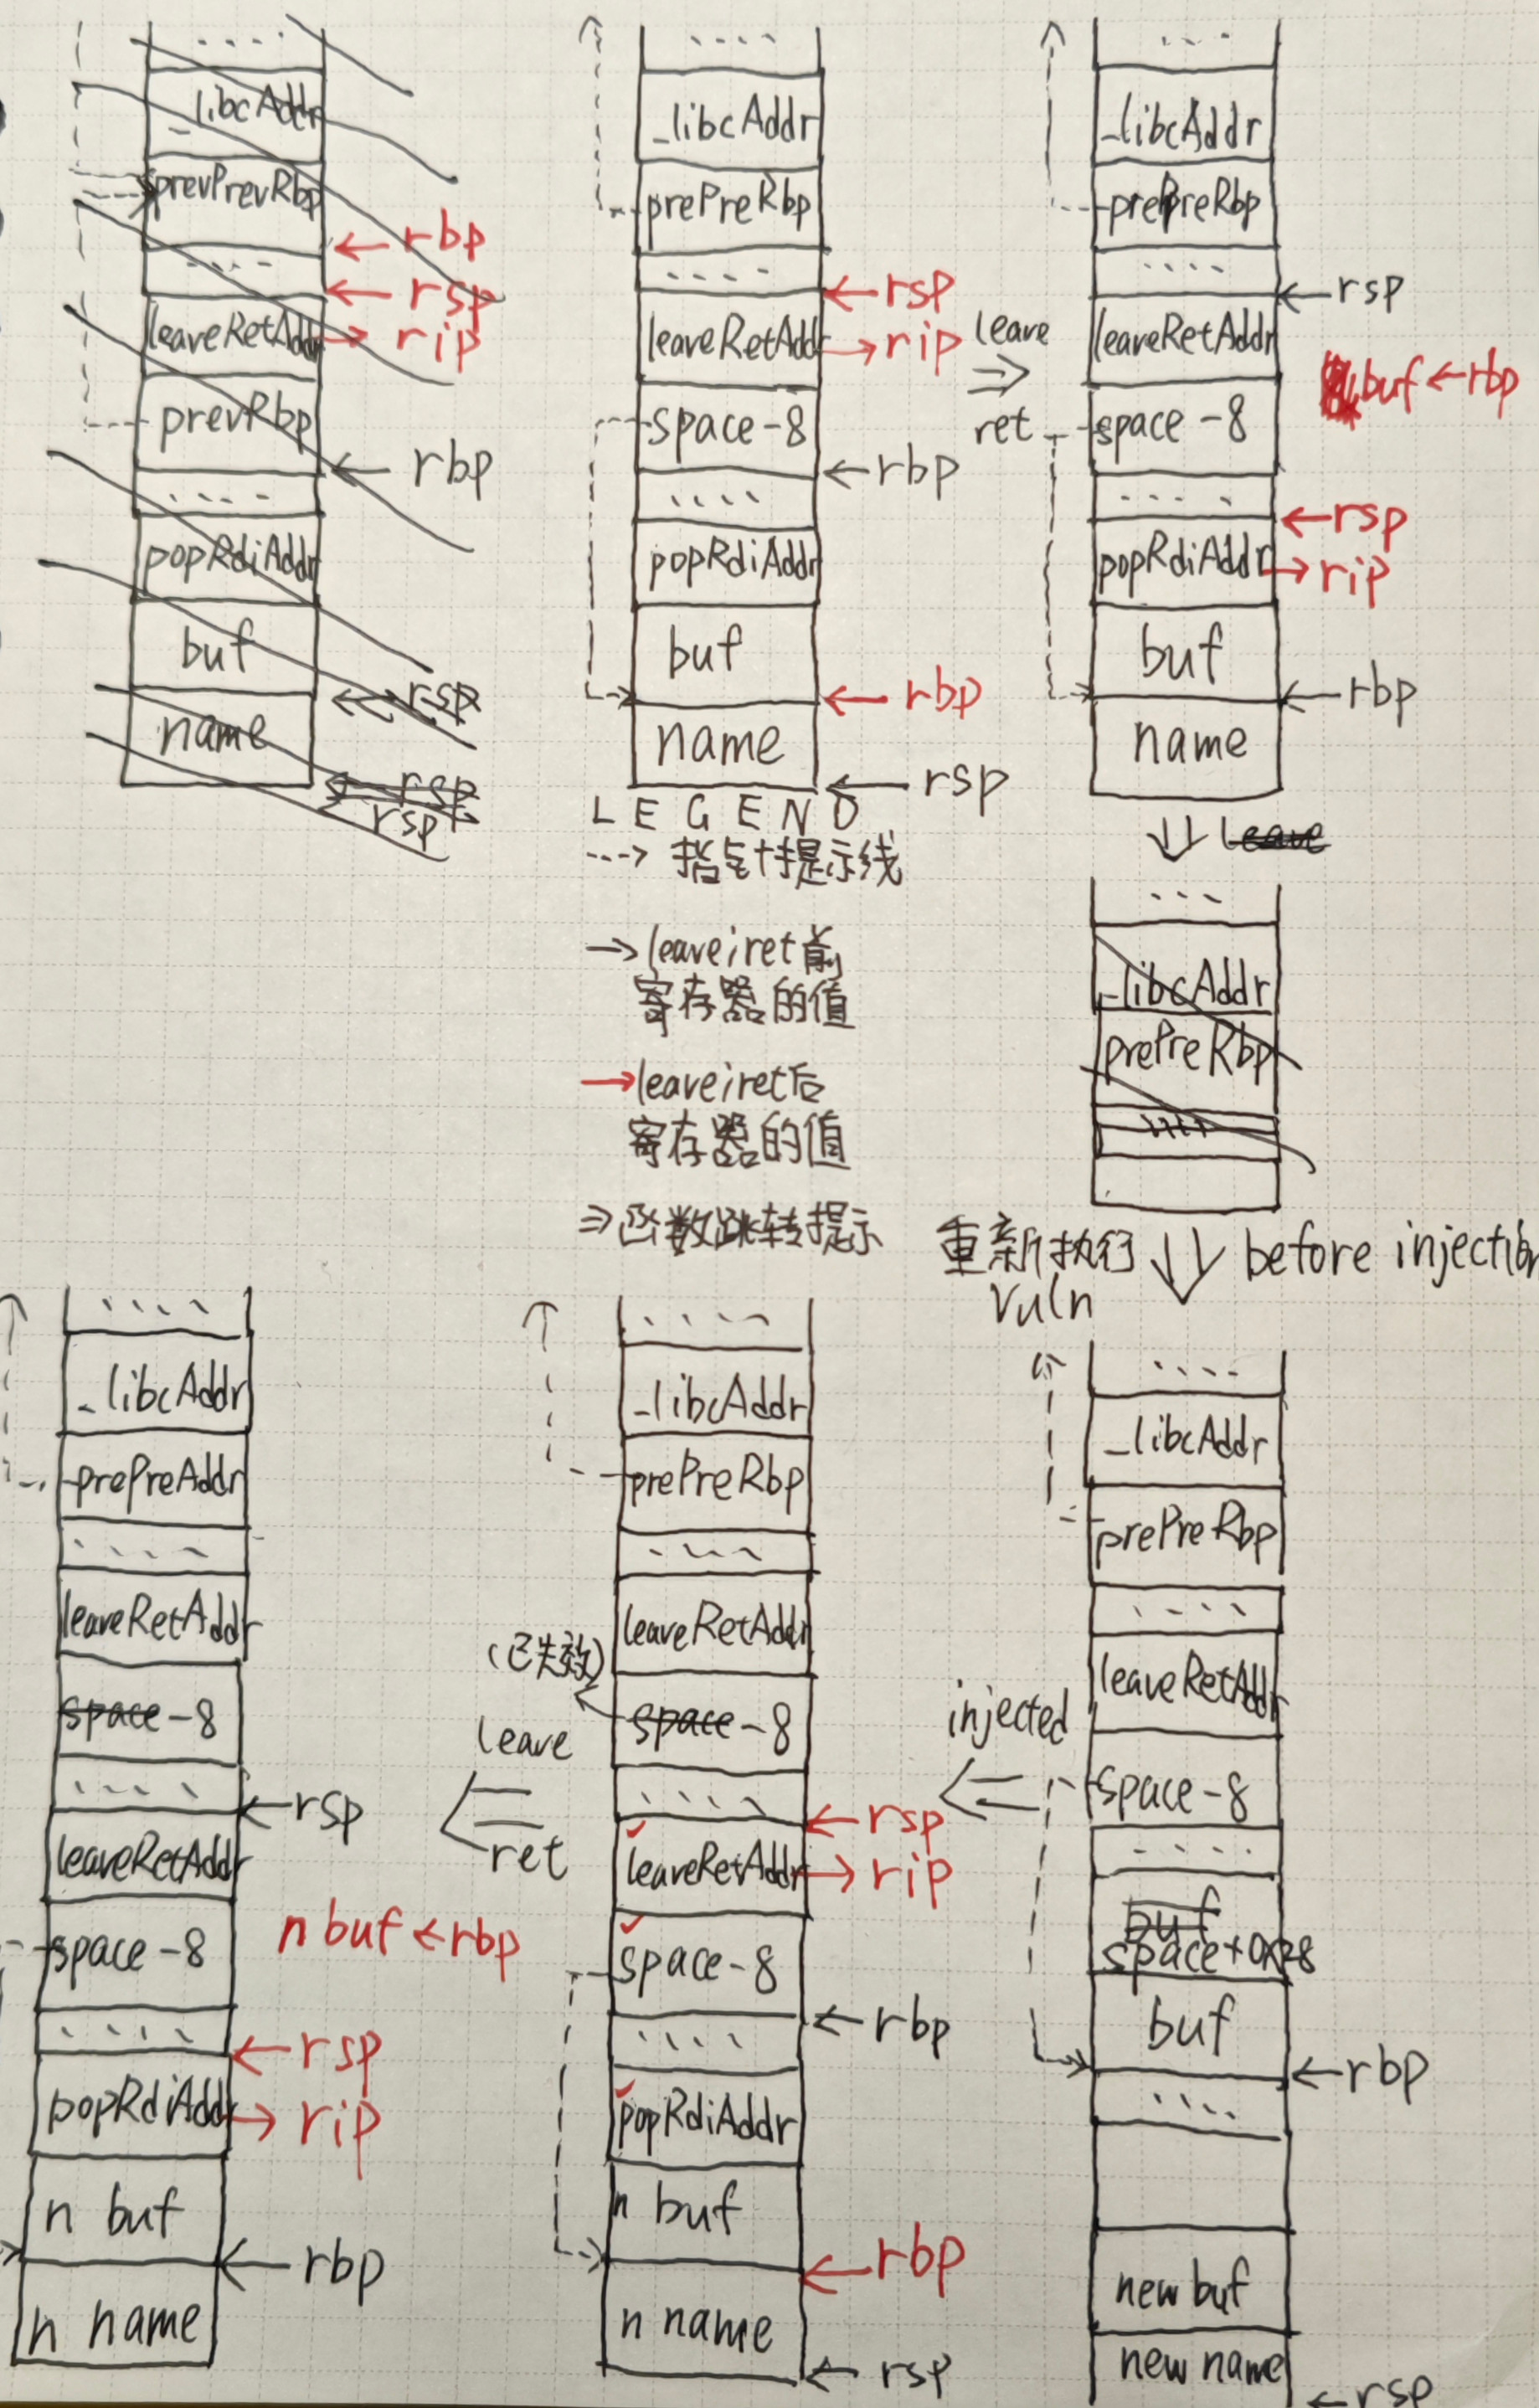 ....
_libcAddr
prevPrevRbp
← rbp
....
← rsp
leaveRetAddr → rip
prevRbp
← rbp
....
popRdiAddr
buf
← rsp
name
← rsp
rsp
....
_libcAddr
prePreRbp
....
← rsp
leaveRetAddr → rip
space-8
← rbp
....
popRdiAddr
buf
← rbp
name
← rsp
leave
⇒
ret
....
_libcAddr
prePreRbp
....
← rsp
leaveRetAddr
buf ← rbp
space-8
....
← rsp
popRdiAddr → rip
buf
← rbp
name
LEGEND
⇢ 指针提示线
→ leave;ret前
寄存器的值
→ leave;ret后
寄存器的值
⇒ 函数跳转提示
leave
...
_libcAddr
prePreRbp
重新执行
Vuln
before injection
....
_libcAddr
prePreRbp
....
leaveRetAddr
space-8
....
buf
space+0x28
buf
← rbp
....
new buf
new name
← rsp
injected
....
_libcAddr
prePreRbp
....
leaveRetAddr
(已失效)
space-8
....
← rsp
leaveRetAddr → rip
space-8
← rbp
....
popRdiAddr
n buf
← rbp
n name
← rsp
leave
ret
....
_libcAddr
prePreAddr
....
leaveRetAddr
space-8
....
← rsp
leaveRetAddr
n buf ← rbp
space-8
....
← rsp
popRdiAddr → rip
n buf
← rbp
n name